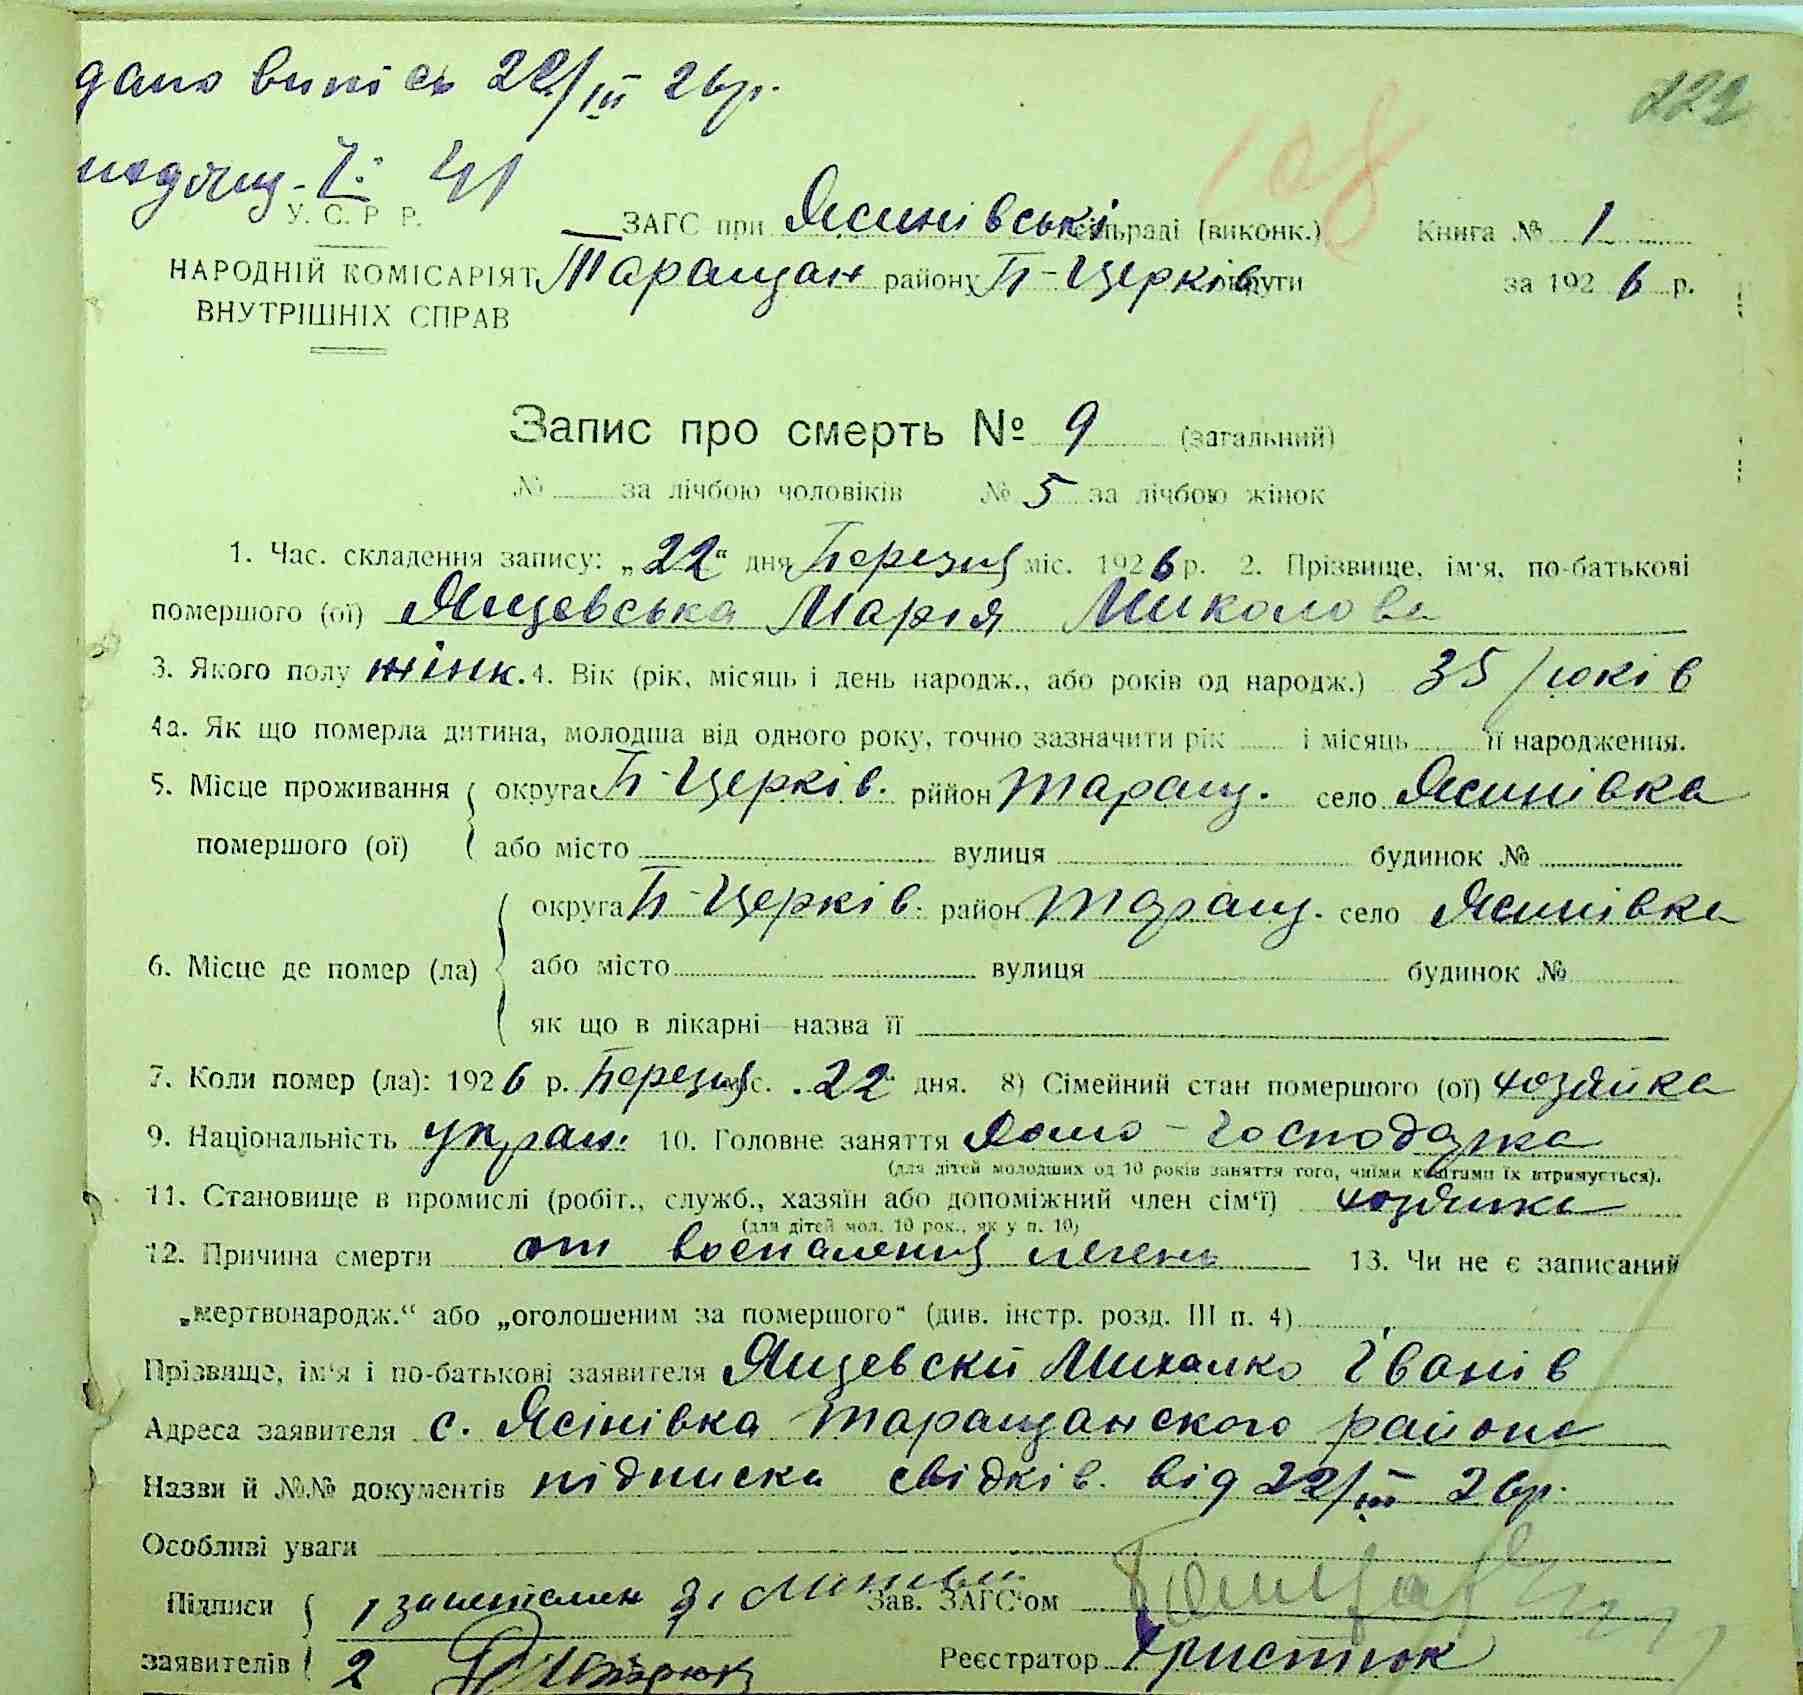 дано випісь 22/III 26р.
222
108
У. С. Р Р.
ЗАГС при Ясинівські сільраді (виконк.)
Книга № 1
НАРОДНІЙ КОМІСАРІЯТ
Таращан району Б-Церків округи
за 192 6 р.
ВНУТРІШНІХ СПРАВ
Запис про смерть № 9 (загальний)
№ за лічбою чоловіків № 5 за лічбою жінок
1. Час. складення запису: „22“ дня Березня міс. 192 6 р. 2. Прізвище, ім'я, по-батькові
помершого (ої) Ящевська Марія Миколова
3. Якого полу жінк. 4. Вік (рік, місяць і день народж., або років од народж.) 35 років
4а. Як що померла дитина, молодша від одного року, точно зазначити рік і місяць її народження.
5. Місце проживання округа Б-Церків. рййон Таращ. село Ясинівка
помершого (ої) або місто вулиця будинок №
округа Б-Церків. район Таращ. село Ясинівка
6. Місце де помер (ла) або місто вулиця будинок №
як що в лікарні—назва її
7. Коли помер (ла): 192 6 р. Березня міс. 22 дня. 8) Сімейний стан помершого (ої) хозяйка
9. Національність украін. 10. Головне заняття домо-господарка
(для дітей молодших од 10 років заняття того, чиїми коштами їх втримується).
11. Становище в промислі (робіт., служб., хазяїн або допоміжний член сім'ї) хозяика
(для дітей мол. 10 рок., як у п. 10)
12. Причина смерти от воспаления легень 13. Чи не є записаний
„мертвонародж.“ або „оголошеним за помершого“ (див. інстр. розд. III п. 4)
Прізвище, ім'я і по-батькові заявителя Ящевскй Михалко Іванів
Адреса заявителя с. Ясінівка таращанского района
Назви й №№ документів підписка свідків. від 22/III 26р.
Особливі уваги
Підписи 1 Зав. ЗАГС'ом
заявителів 2 Реєстратор Христюк